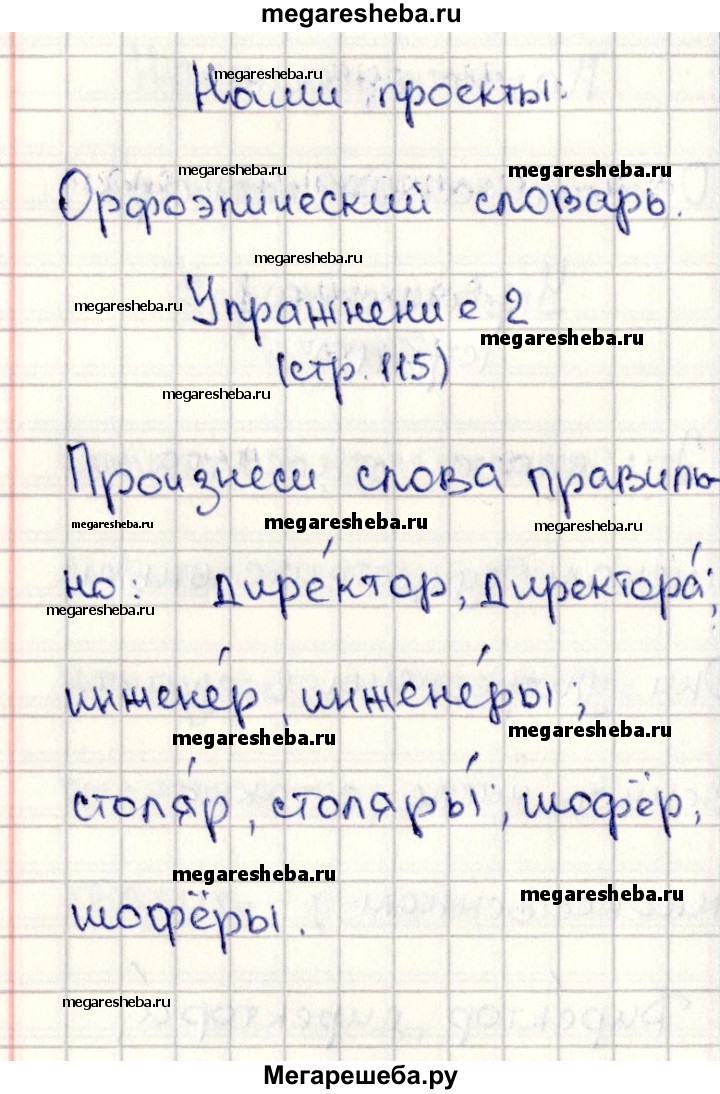 megaresheba.ru
Наши проекты:
megaresheba.ru
megaresheba.ru megaresheba.ru
Орфоэпический словарь.
megaresheba.ru
Упражнение 2
megaresheba.ru megaresheba.ru
(стр. 115)
megaresheba.ru
Произнеси слова правиль-
megaresheba.ru megaresheba.ru megaresheba.ru
но: дире́ктор, директора́;
megaresheba.ru
инжене́р, инжене́ры;
megaresheba.ru megaresheba.ru
столя́р, столяры́; шофёр,
megaresheba.ru megaresheba.ru
шофёры.
megaresheba.ru
Мегарешеба.ру